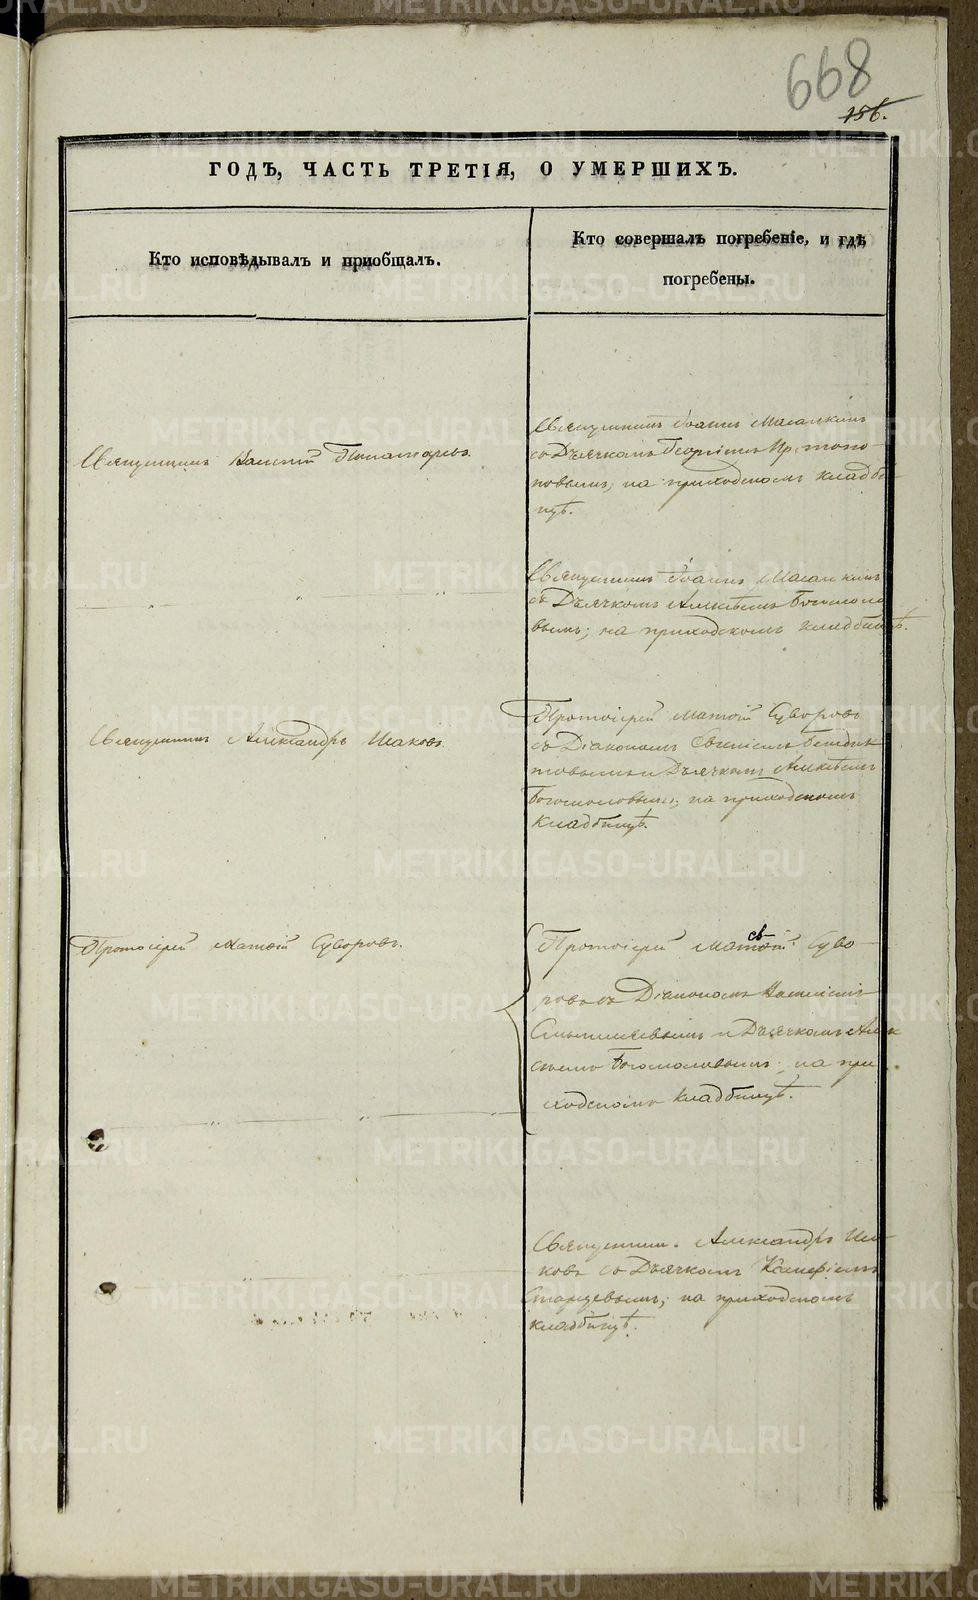 668
156.
ГОДЪ, ЧАСТЬ ТРЕТІЯ, О УМЕРШИХЪ.
Кто исповѣдывалъ и приобщалъ.
Кто совершалъ погребеніе, и гдѣ
погребены.
Священникъ Василій
Священникъ Іоаннъ
съ Дьячкомъ Георгіемъ Прото-
поповымъ; на приходскомъ кладби-
щѣ.
Священникъ Іоаннъ
съ Дьячкомъ Алексѣемъ Богосло-
вымъ; на приходскомъ кладбищѣ.
Священникъ Александръ Исаковъ.
Протоіерей Матѳій Суворовъ
съ Діакономъ Евгеніемъ
и Дьячкомъ Алексѣемъ
Богословымъ; на приходскомъ
кладбищѣ.
Протоіерей Матѳій Суворовъ.
Протоіерей Матѳій Суво-
ровъ съ Діакономъ Василіемъ
Смышляевымъ и Дьячкомъ Алек
сѣемъ Богословымъ; на при
ходскомъ кладбищѣ.
Священник. Александръ Иса
ковъ съ Дьячкомъ
Старцевымъ; на приходскомъ
кладбищѣ.
METRIKI.GASO-URAL.RU